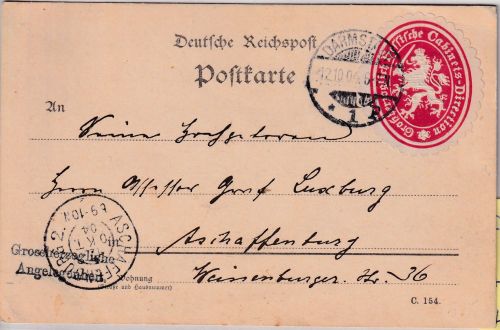 Deutsche Reichspost
Postkarte
DARMSTADT
12.10.04
* 1
Großherzoglich Hessische Cabinets-Direction
An
Seine Hochgeboren
Herrn Assessor Graf Luxburg
Aschaffenburg
Weissenburger. Str. 36
Wohnung
(Straße und Hausnummer)
ASCHAFFENBURG 2
OKT
04
Grossherzogliche
Angelegenheit
C. 154.